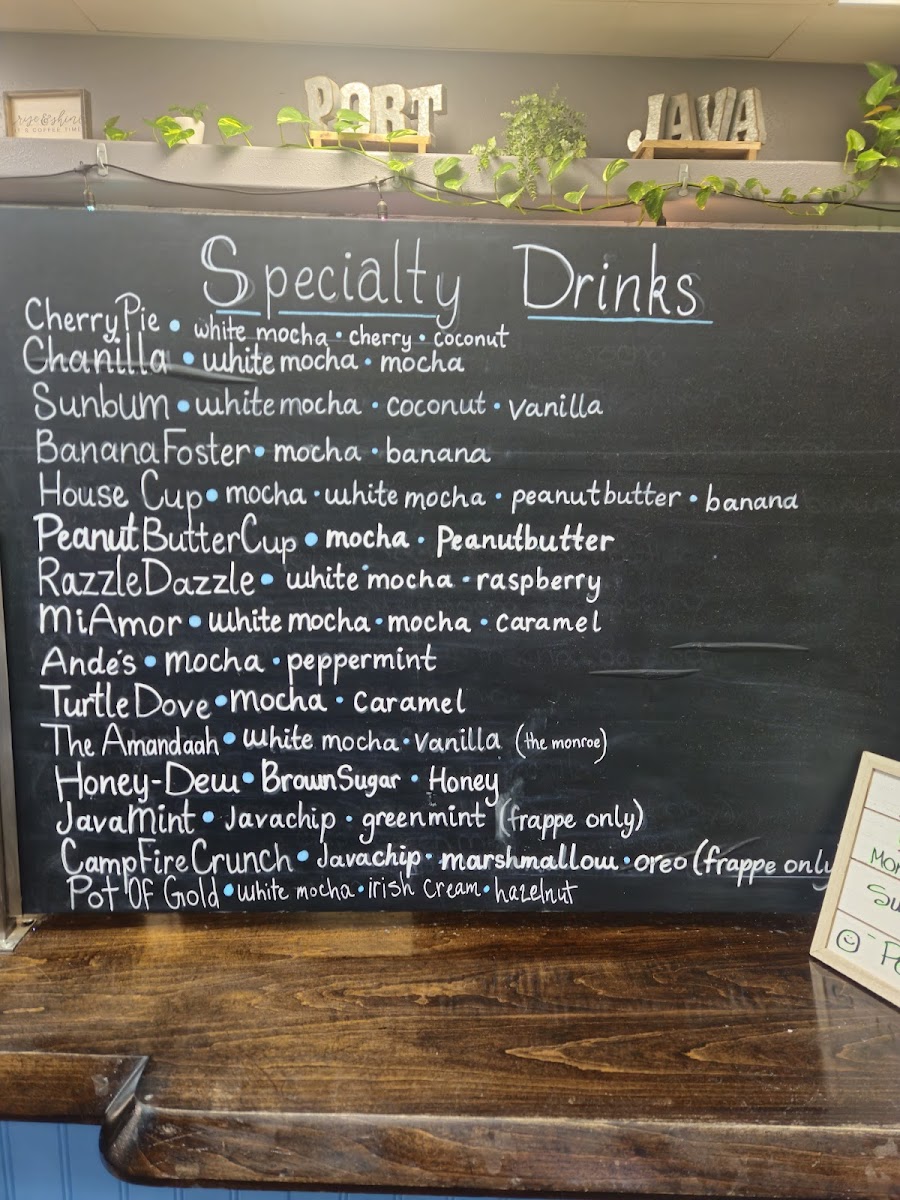 rise & shine
IT'S COFFEE TIME
PORT JAVA
Specialty Drinks
Cherry Pie • white mocha • cherry • coconut
Chanilla • white mocha • mocha
Sunbum • white mocha • coconut • vanilla
Banana Foster • mocha • banana
House Cup • mocha • white mocha • peanut butter • banana
Peanut Butter Cup • mocha • Peanutbutter
Razzle Dazzle • white mocha • raspberry
Mi Amor • white mocha • mocha • caramel
Ande's • mocha • peppermint
Turtle Dove • mocha • caramel
The Amandaah • white mocha • vanilla (the monroe)
Honey-Dew • Brown Sugar • Honey
Java Mint • Javachip • green mint (frappe only)
CampFire Crunch • Javachip • marshmallow • oreo (frappe only
Pot Of Gold • white mocha • irish cream • hazelnut